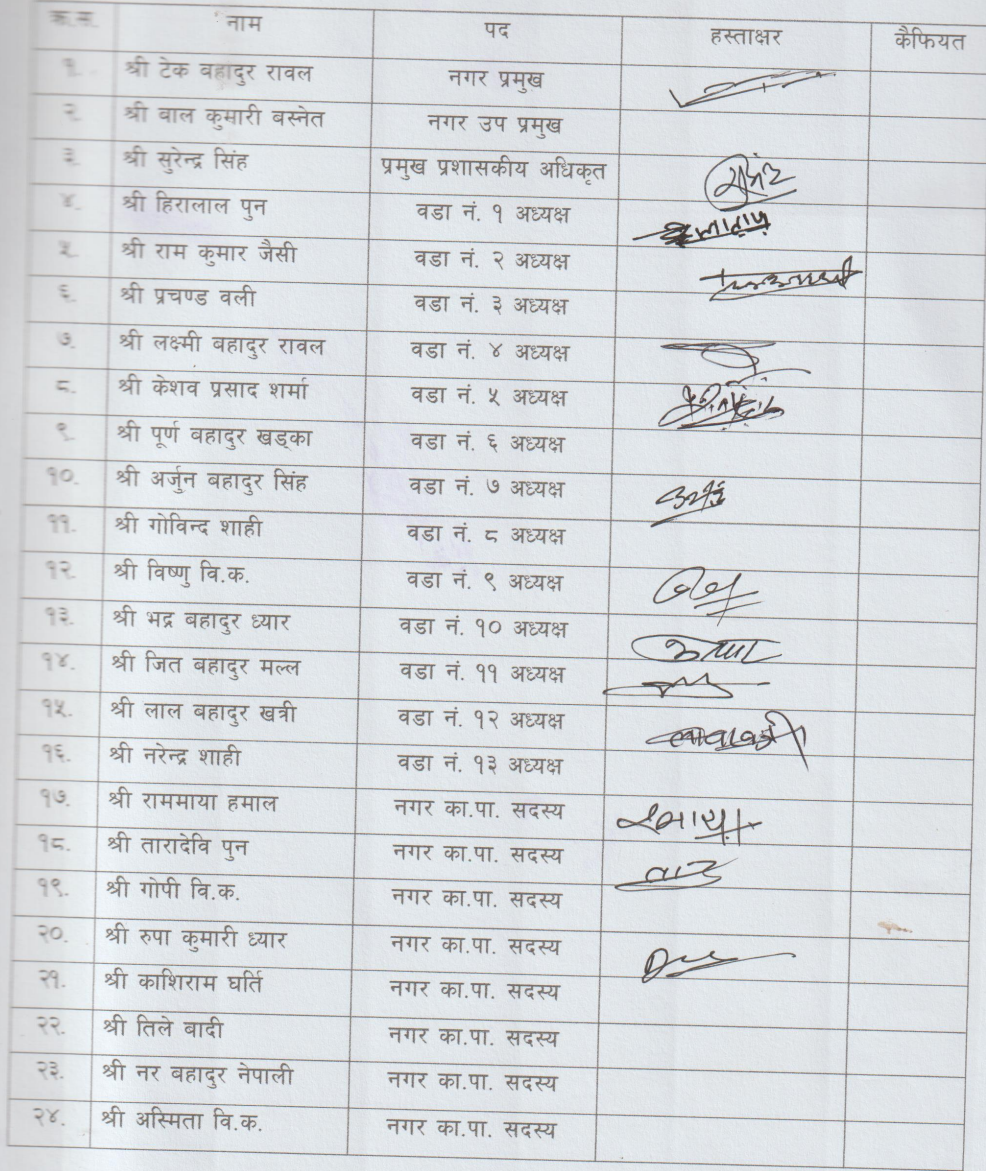 क्र.स. नाम पद हस्ताक्षर कैफियत
१. श्री टेक बहादुर रावल नगर प्रमुख
२. श्री वाल कुमारी बस्नेत नगर उप प्रमुख
३. श्री सुरेन्द्र सिंह प्रमुख प्रशासकीय अधिकृत
४. श्री हिरालाल पुन वडा नं. १ अध्यक्ष
५. श्री राम कुमार जैसी वडा नं. २ अध्यक्ष
६. श्री प्रचण्ड वली वडा नं. ३ अध्यक्ष
७. श्री लक्ष्मी बहादुर रावल वडा नं. ४ अध्यक्ष
८. श्री केशव प्रसाद शर्मा वडा नं. ५ अध्यक्ष
९. श्री पूर्ण बहादुर खड्का वडा नं. ६ अध्यक्ष
१०. श्री अर्जुन बहादुर सिंह वडा नं. ७ अध्यक्ष
११. श्री गोविन्द शाही वडा नं. ८ अध्यक्ष
१२. श्री विष्णु वि.क. वडा नं. ९ अध्यक्ष
१३. श्री भद्र बहादुर ध्यार वडा नं. १० अध्यक्ष
१४. श्री जित बहादुर मल्ल वडा नं. ११ अध्यक्ष
१५. श्री लाल बहादुर खत्री वडा नं. १२ अध्यक्ष
१६. श्री नरेन्द्र शाही वडा नं. १३ अध्यक्ष
१७. श्री राममाया हमाल नगर का.पा. सदस्य
१८. श्री तारादेवि पुन नगर का.पा. सदस्य
१९. श्री गोपी वि.क. नगर का.पा. सदस्य
२०. श्री रुपा कुमारी ध्यार नगर का.पा. सदस्य
२१. श्री काशिराम घर्ति नगर का.पा. सदस्य
२२. श्री तिले वादी नगर का.पा. सदस्य
२३. श्री नर बहादुर नेपाली नगर का.पा. सदस्य
२४. श्री अस्मिता वि.क. नगर का.पा. सदस्य